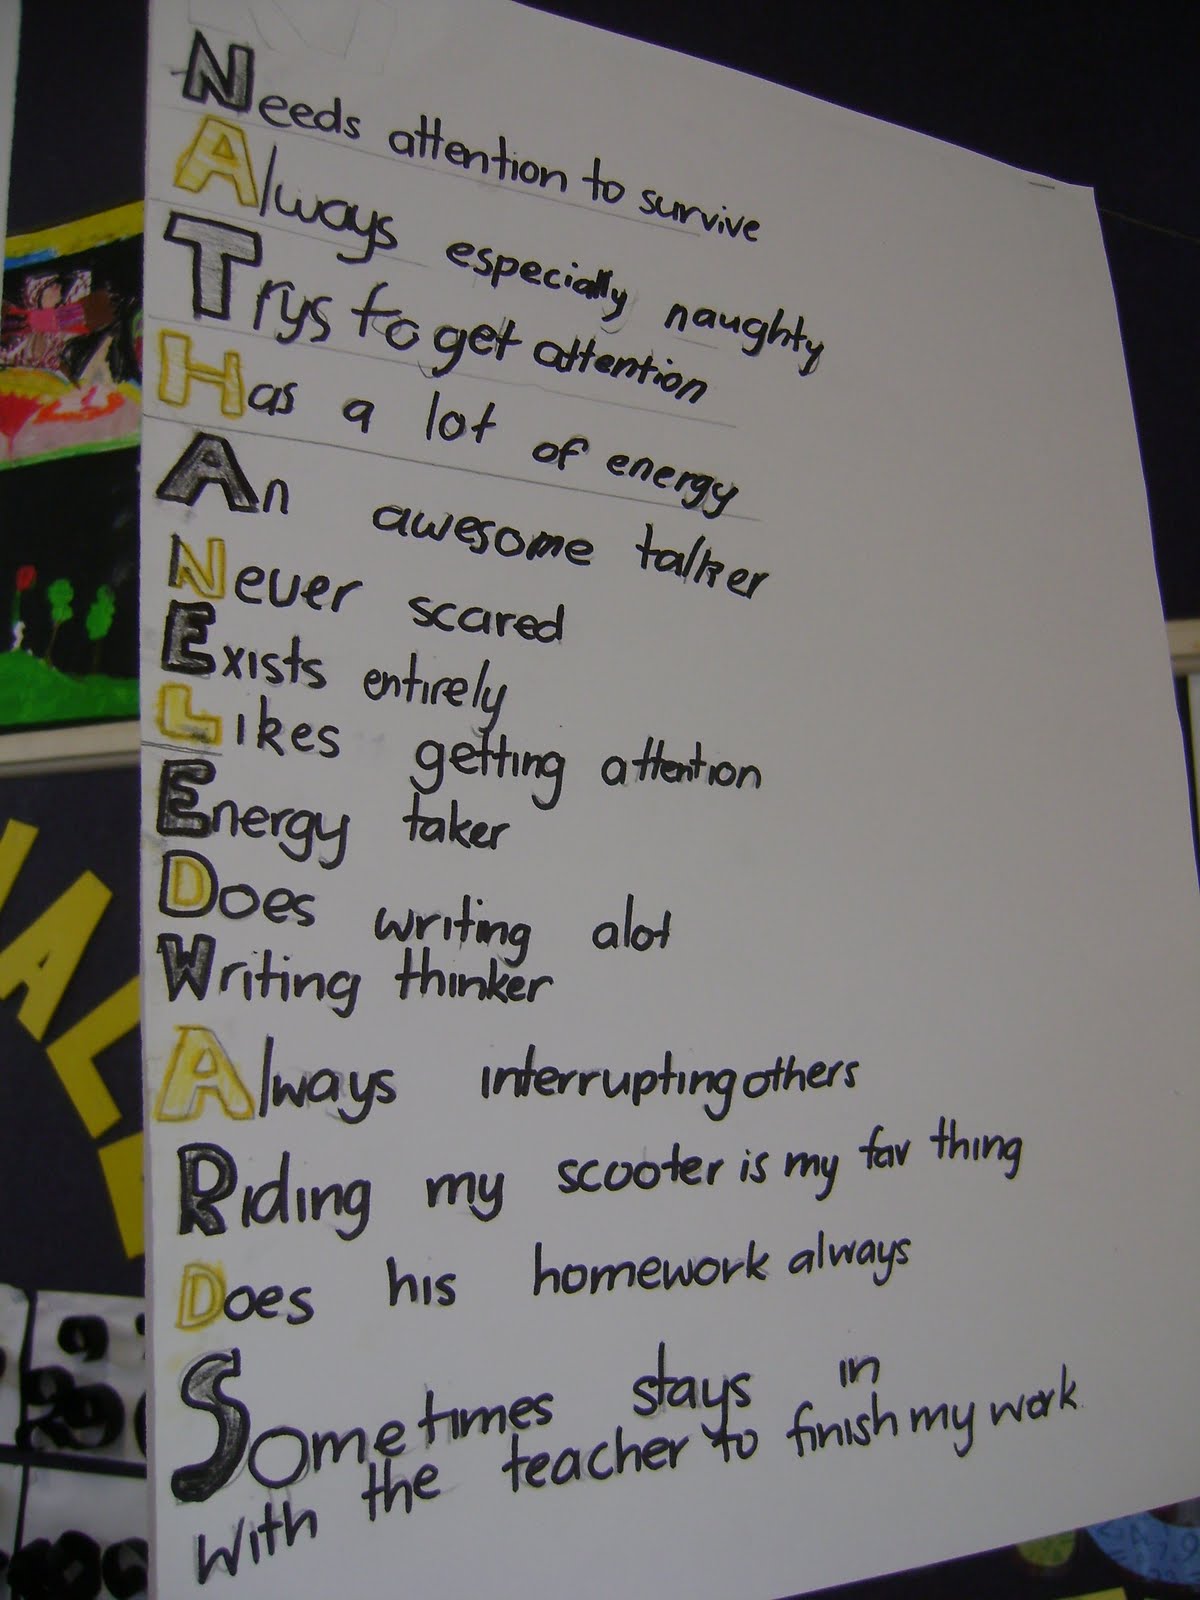 Needs attention to survive
Always especially naughty
Trys to get attention
Has a lot of energy
An awesome talker
Never scared
Exists entirely
Likes getting attention
Energy taker
Does writing alot
Writing thinker
Always interrupting others
Riding my scooter is my fav thing
Does his homework always
Sometimes stays in
with the teacher to finish my work